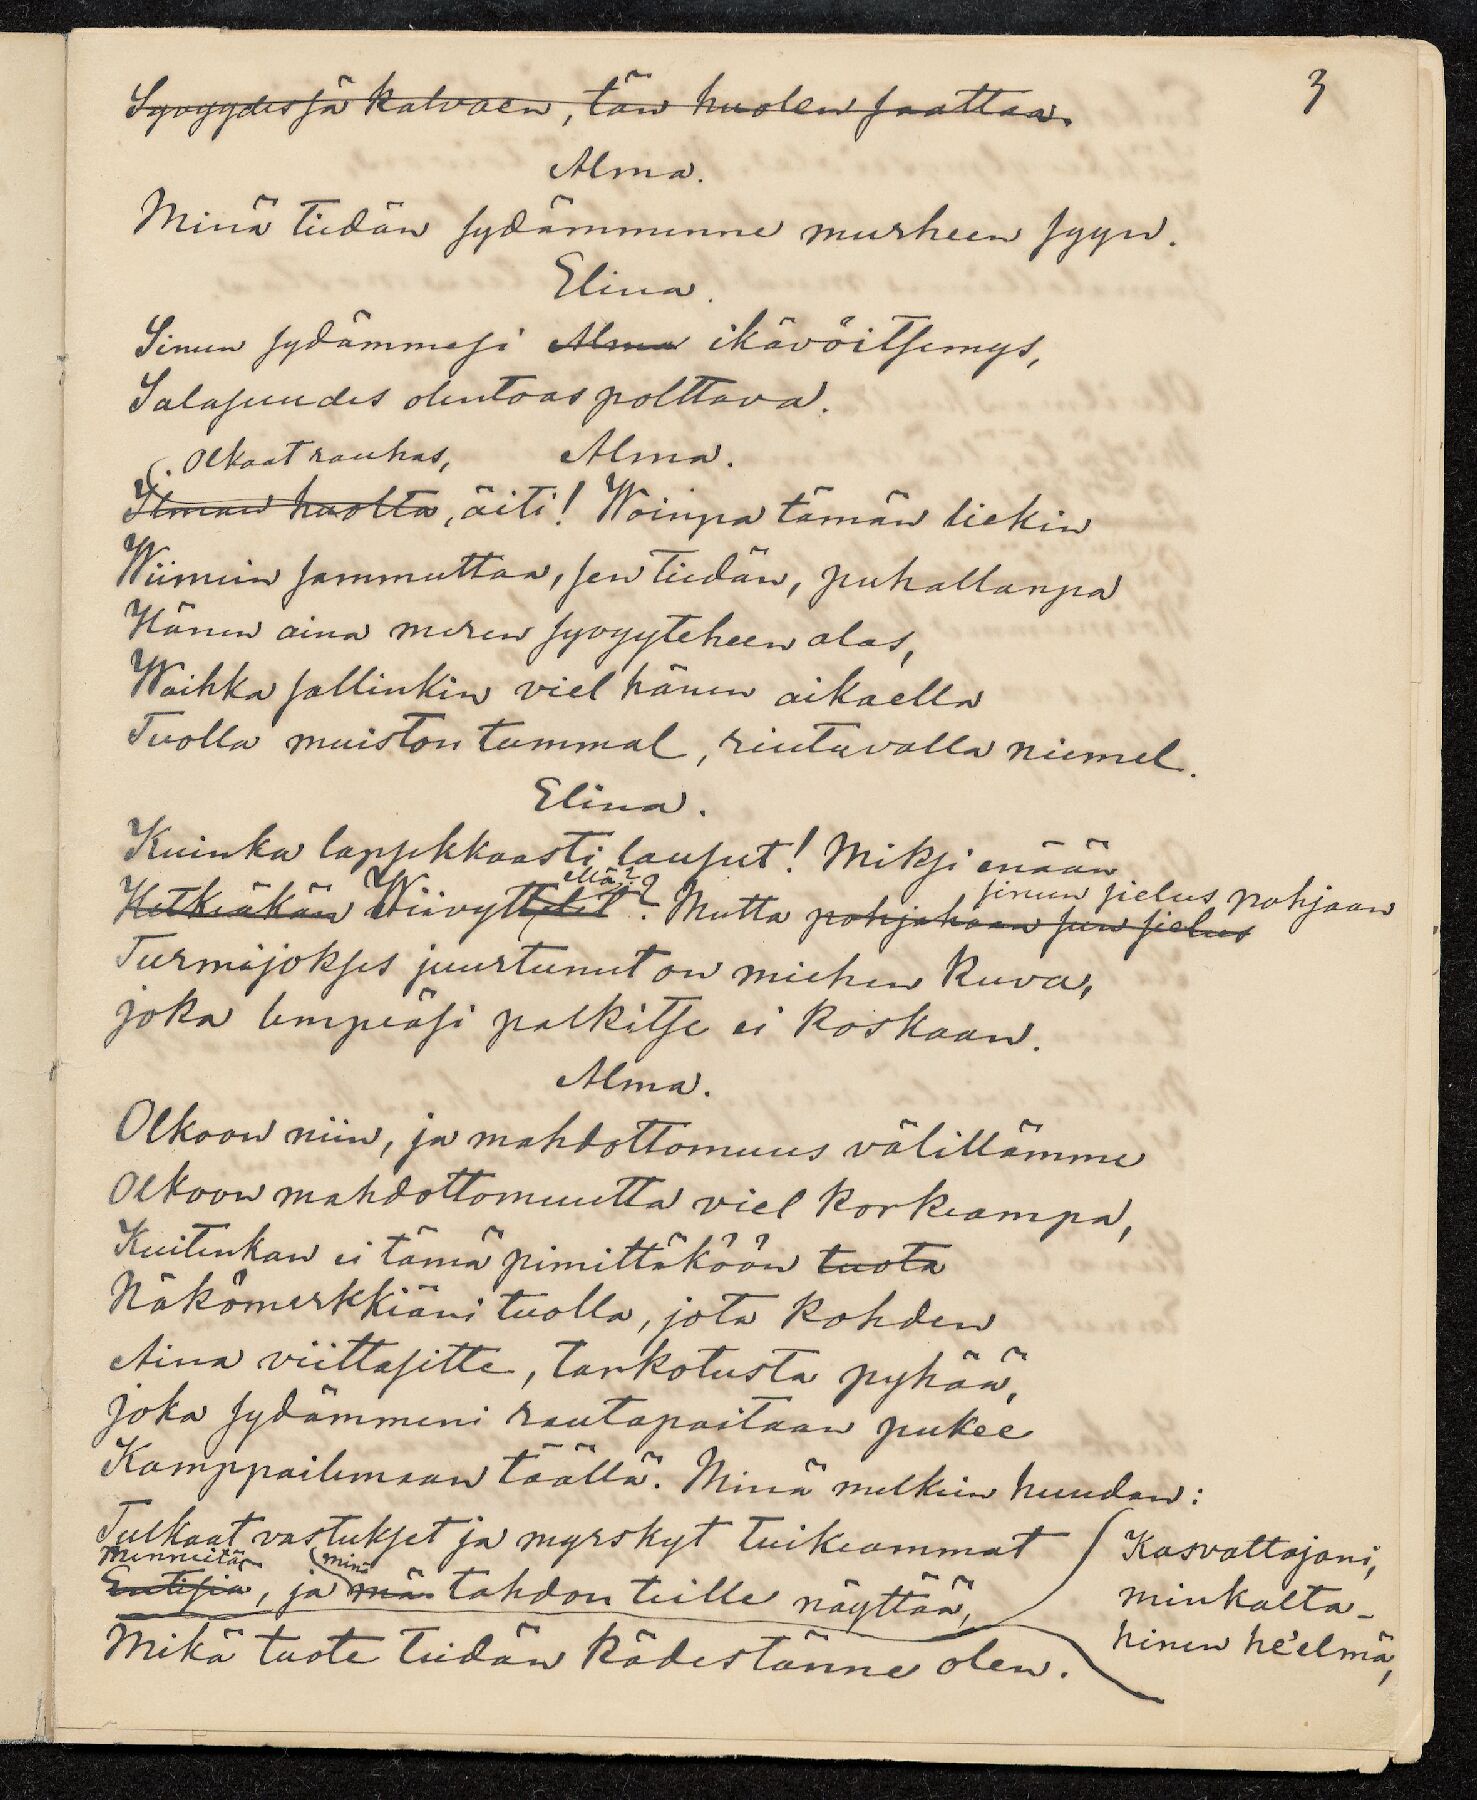 3
Syvyydessä kalvaen, tän huolen saattaa.
Alma.
Minä tiedän sydämmenne murheen syyn.
Elina.
Sinun sydämmesi Alma ikävöitsemys,
Salasuudes olentoas polttava.
Olkaat rauhas, Alma.
Ilman huolta, äiti! Woinpa tämän liekin
Wiimein sammuttaa, sen tiedän, puhallanpa
Hänen aina meren syvyyteheen alas,
Waihka sallinkin viel hänen aikaella
Tuolla muiston tummal, riutuvalla niemel.
Elina.
Kuinka lapsekkaasti lausut! Miksi enään
ellä? sinun sielus pohjaan
Hetkeäkän Wiivyttelet? Mutta pohjahaan sun sielus
Turmioksses juurtunut on miehen kuva,
joka lempeäsi palkitse ei koskaan.
Alma.
Olkoon niin, ja mahdottomuus välillämme
Olkoon mahdottomuutta viel korkeampa,
Kuitenkan ei tämä pimittäköön tuota
Näkömerkkiäni tuolla, jota kohden
Aina viittasitte, tarkotusta pyhää,
joka sydämmeni rautapaitaan pukee
Kamppailemaan täällä. Minä melkein huudan:
Tulkaat vastukset ja myrskyt tuikeammat
menneitä minä
Entisiä, ja mä tahdon teille näyttää,
Kasvattajani,
minkalta-
hinen he'elmä,
Mikä tuote teidän kädestänne olen.